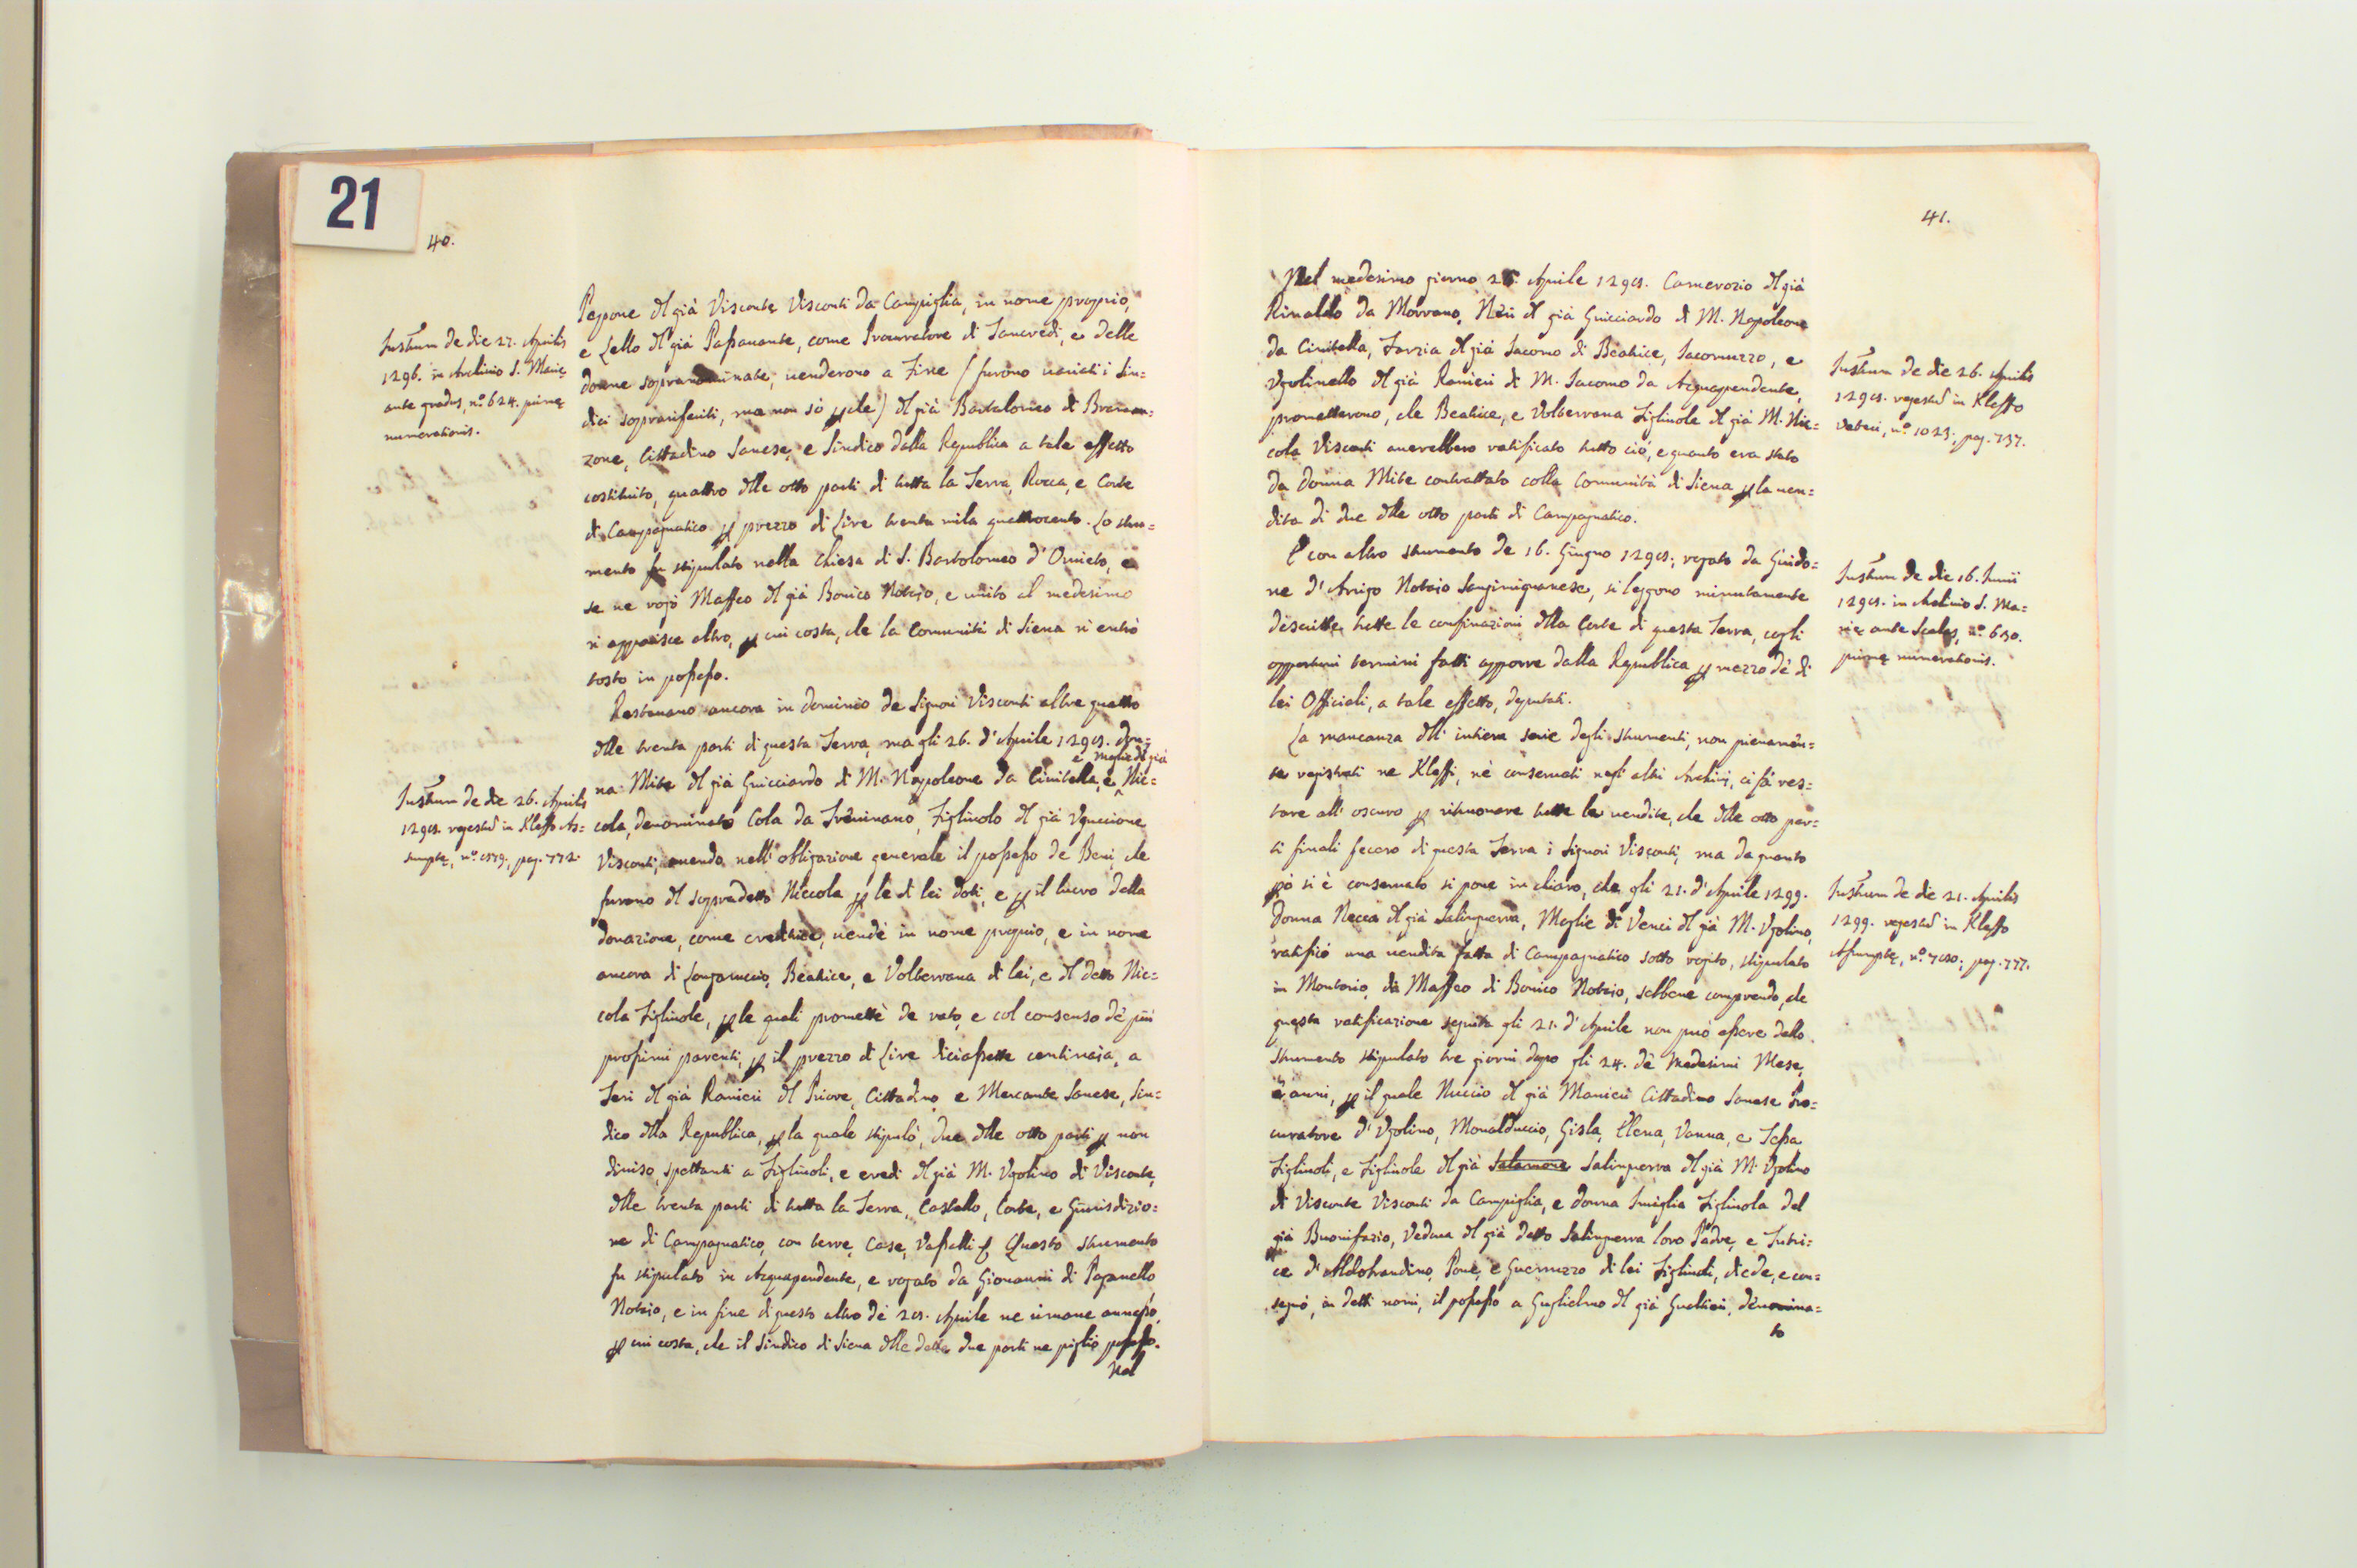 21
40.
Pepone del già Visconte Visconti da Campiglia, in nome proprio,
e Lello del già Passanante, come Procuratore di Tancredi, e delle
donne sopranominate, uenderono a Fine (furono uariati i Sin=
dici soprariferiti, ma non sò perche) del già Bartolomeo di
zone, Cittadino Sanese, e Sindico dalla Republica a tale effetto
costituito, quattro delle otto parti di tutta la Terra, Rocca, e Corte
di Campagnatico per prezzo di Lire trenta mila quattrocento. Lo stru=
mento fu stipulato nella Chiesa di S. Bartolomeo d'Oruieto, e
se ne rogò Maffeo del già Bonico Notaio, e unito al medesimo
ui apparisce altro, per cui costa, che la Comunità di Siena u'entrò
tosto in possesso.
Restauano ancora in dominio de Signori Visconti altre quattro
delle trenta parti di questa Terra, ma gli 26. d'Aprile 1298. don=
na Mite del già Guicciardo di M. Napoleone da Ciuitella, e Moglie del già Nic=
cola, denominato Cola da Treuinano, Figliuolo del già Vguccione
Visconti, auendo nell'obligazione generale il possesso de Beni, che
furono del sopradetto Niccola per le di lei doti, e per il lucro della
donazione, come creditrice, uendè in nome proprio, e in nome
ancora di Longaruccio, Beatrice, e Volterrana di lei, e del detto Nic=
cola Figliuole, per le quali promettè de rato, e col consenso de' più
prossimi parenti, per il prezzo di Lire diciassette centinaia, a
Teri del già Ranieri del Priore, Cittadino e Mercante Sanese, Sin=
dico della Republica, per la quale stipulò, due delle otto parti per non
diuiso, spettanti a Figliuoli, e eredi del già M. Vgolino di Visconte,
delle trenta parti di tutta la Terra, Castello, Corte, e Giurisdizio=
ne di Campagnatico, con terre, Case, Vassalli Questo strumento
fu stipulato in Acquapendente, e rogato da Giouanni di Paganello
Notaio, e in fine di questo altro de' 28. Aprile ne rimane annesso,
per cui costa, che il Sindico di Siena delle dette due parti ne pigliò possesso.
Nel
Instrum de die 27. Aprilis
1296. in Archiuio S. Marię
ante gradus, n.º 624. primę
numerationis.
Instrum de die 26. Aprilis
1298. regestum in Kleffo As=
sumptę, n.º 879., pag. 772.
41.
Nel medesimo giorno 26. Aprile 1298. Camerozio del già
Rinaldo da Morrano, Neri del già Guicciardo di M. Napoleone
da Ciuitella, Farzia del già Iacomo di Beatrice, Iacomuzzo, e
Vgolinello del già Ranieri di M. Iacomo da Acquapendente,
prometterono, che Beatrice, e Volterrana Figliuole del già M. Nic=
cola Visconti auerebbero ratificato tutto ciò, e quanto era stato
da donna Mite contrattato colla Comunità di Siena per la uen=
dita di due delle otto parti di Campagnatico.
E con altro strumento de 16. Giugno 1298., rogato da Guido=
ne d'Arrigo Notaio Sangimignanese, si leggono minutamente
descritte tutte le confinazioni della Corte di questa Terra, cogli
opportuni termini fatti apporre dalla Republica per mezzo de' di
lei Officiali, a tale effetto, deputati.
La mancanza dell'intiera serie degli strumenti, non pienamen=
te registrati ne Kleffi, nè conseruati negl'altri Archiui, ci fà res=
tare all'oscuro per rituonare tutte le uendite, che delle otto par=
ti finali fecero di questa Terra i Signori Visconti, ma da quanto
però si è conseruato si pone in chiaro, che gli 21. d'Aprile 1299.
Donna Necca del già Salinguerra, Moglie di Venci del già M. Vgolino,
ratificò una uendita fatta di Campagnatico sotto rogito, stipulato
in Montorio, da Maffeo di Bonico Notaio, sebbene comprendo, che
questa ratificazione seguita gli 21. d'Aprile non può essere dello
strumento stipulato tre giorni dopo gli 24. de' medesimi Mese,
e anni, per il quale Nuccio del già Manieri Cittadino Sanese Pro=
curatore d'Vgolino, Monalduccio, Gisla, Elena, Vanna, e Tessa
Figliuoli, e Figliuole del già Salamone Salinguerra del già M. Vgolino
di Visconte Visconti da Campiglia, e donna Smiglia Figliuola del
già Buonifazio, Vedoua del già detto Salinguerra loro Padre, e Tutri=
ce d'Aldobrandino, Pone, e Guerruzzo di lei Figliuoli, diede, e con=
segnò, in detti nomi, il possesso a Guglielmo del già Gualtieri, denomina=
to
Instrum de die 26. Aprilis
1298. regestum in Kleffo
Veteri, n.º 1023., pag. 737.
Instrum de die 16. Iunii
1298. in Archiuio S. Ma=
rię ante Scalas, n.º 630.
primę numerationis.
Instrum de die 21. Aprilis
1299. regestum in Kleffo
Assumptę, n.º 780., pag. 777.